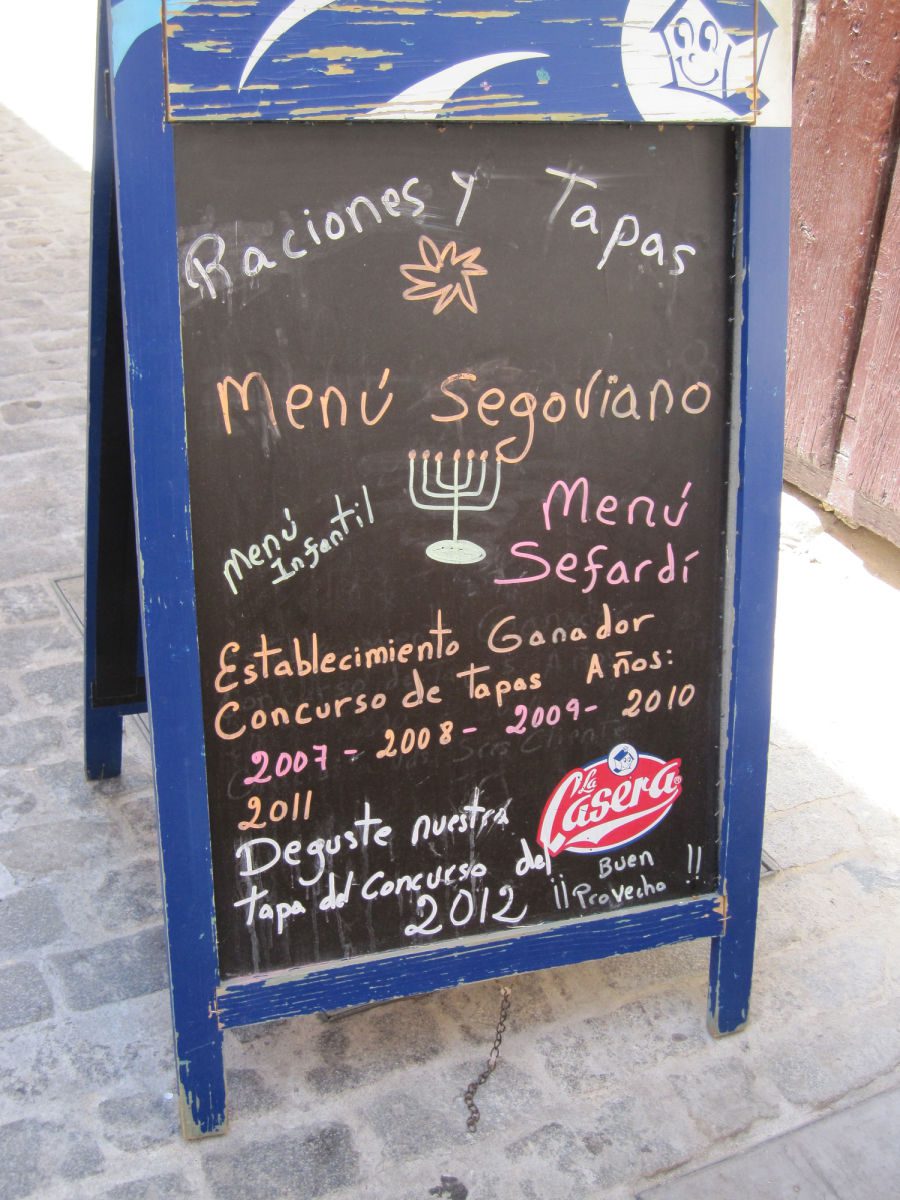 Raciones y Tapas
Menú Segoviano
Menú
Infantil
Menú
Sefardí
Establecimiento Ganador
Concurso de Tapas Años:
2007 - 2008 - 2009 - 2010
2011
La
Casera®
Deguste nuestra
tapa del concurso del
2012
¡¡ Buen
Provecho !!